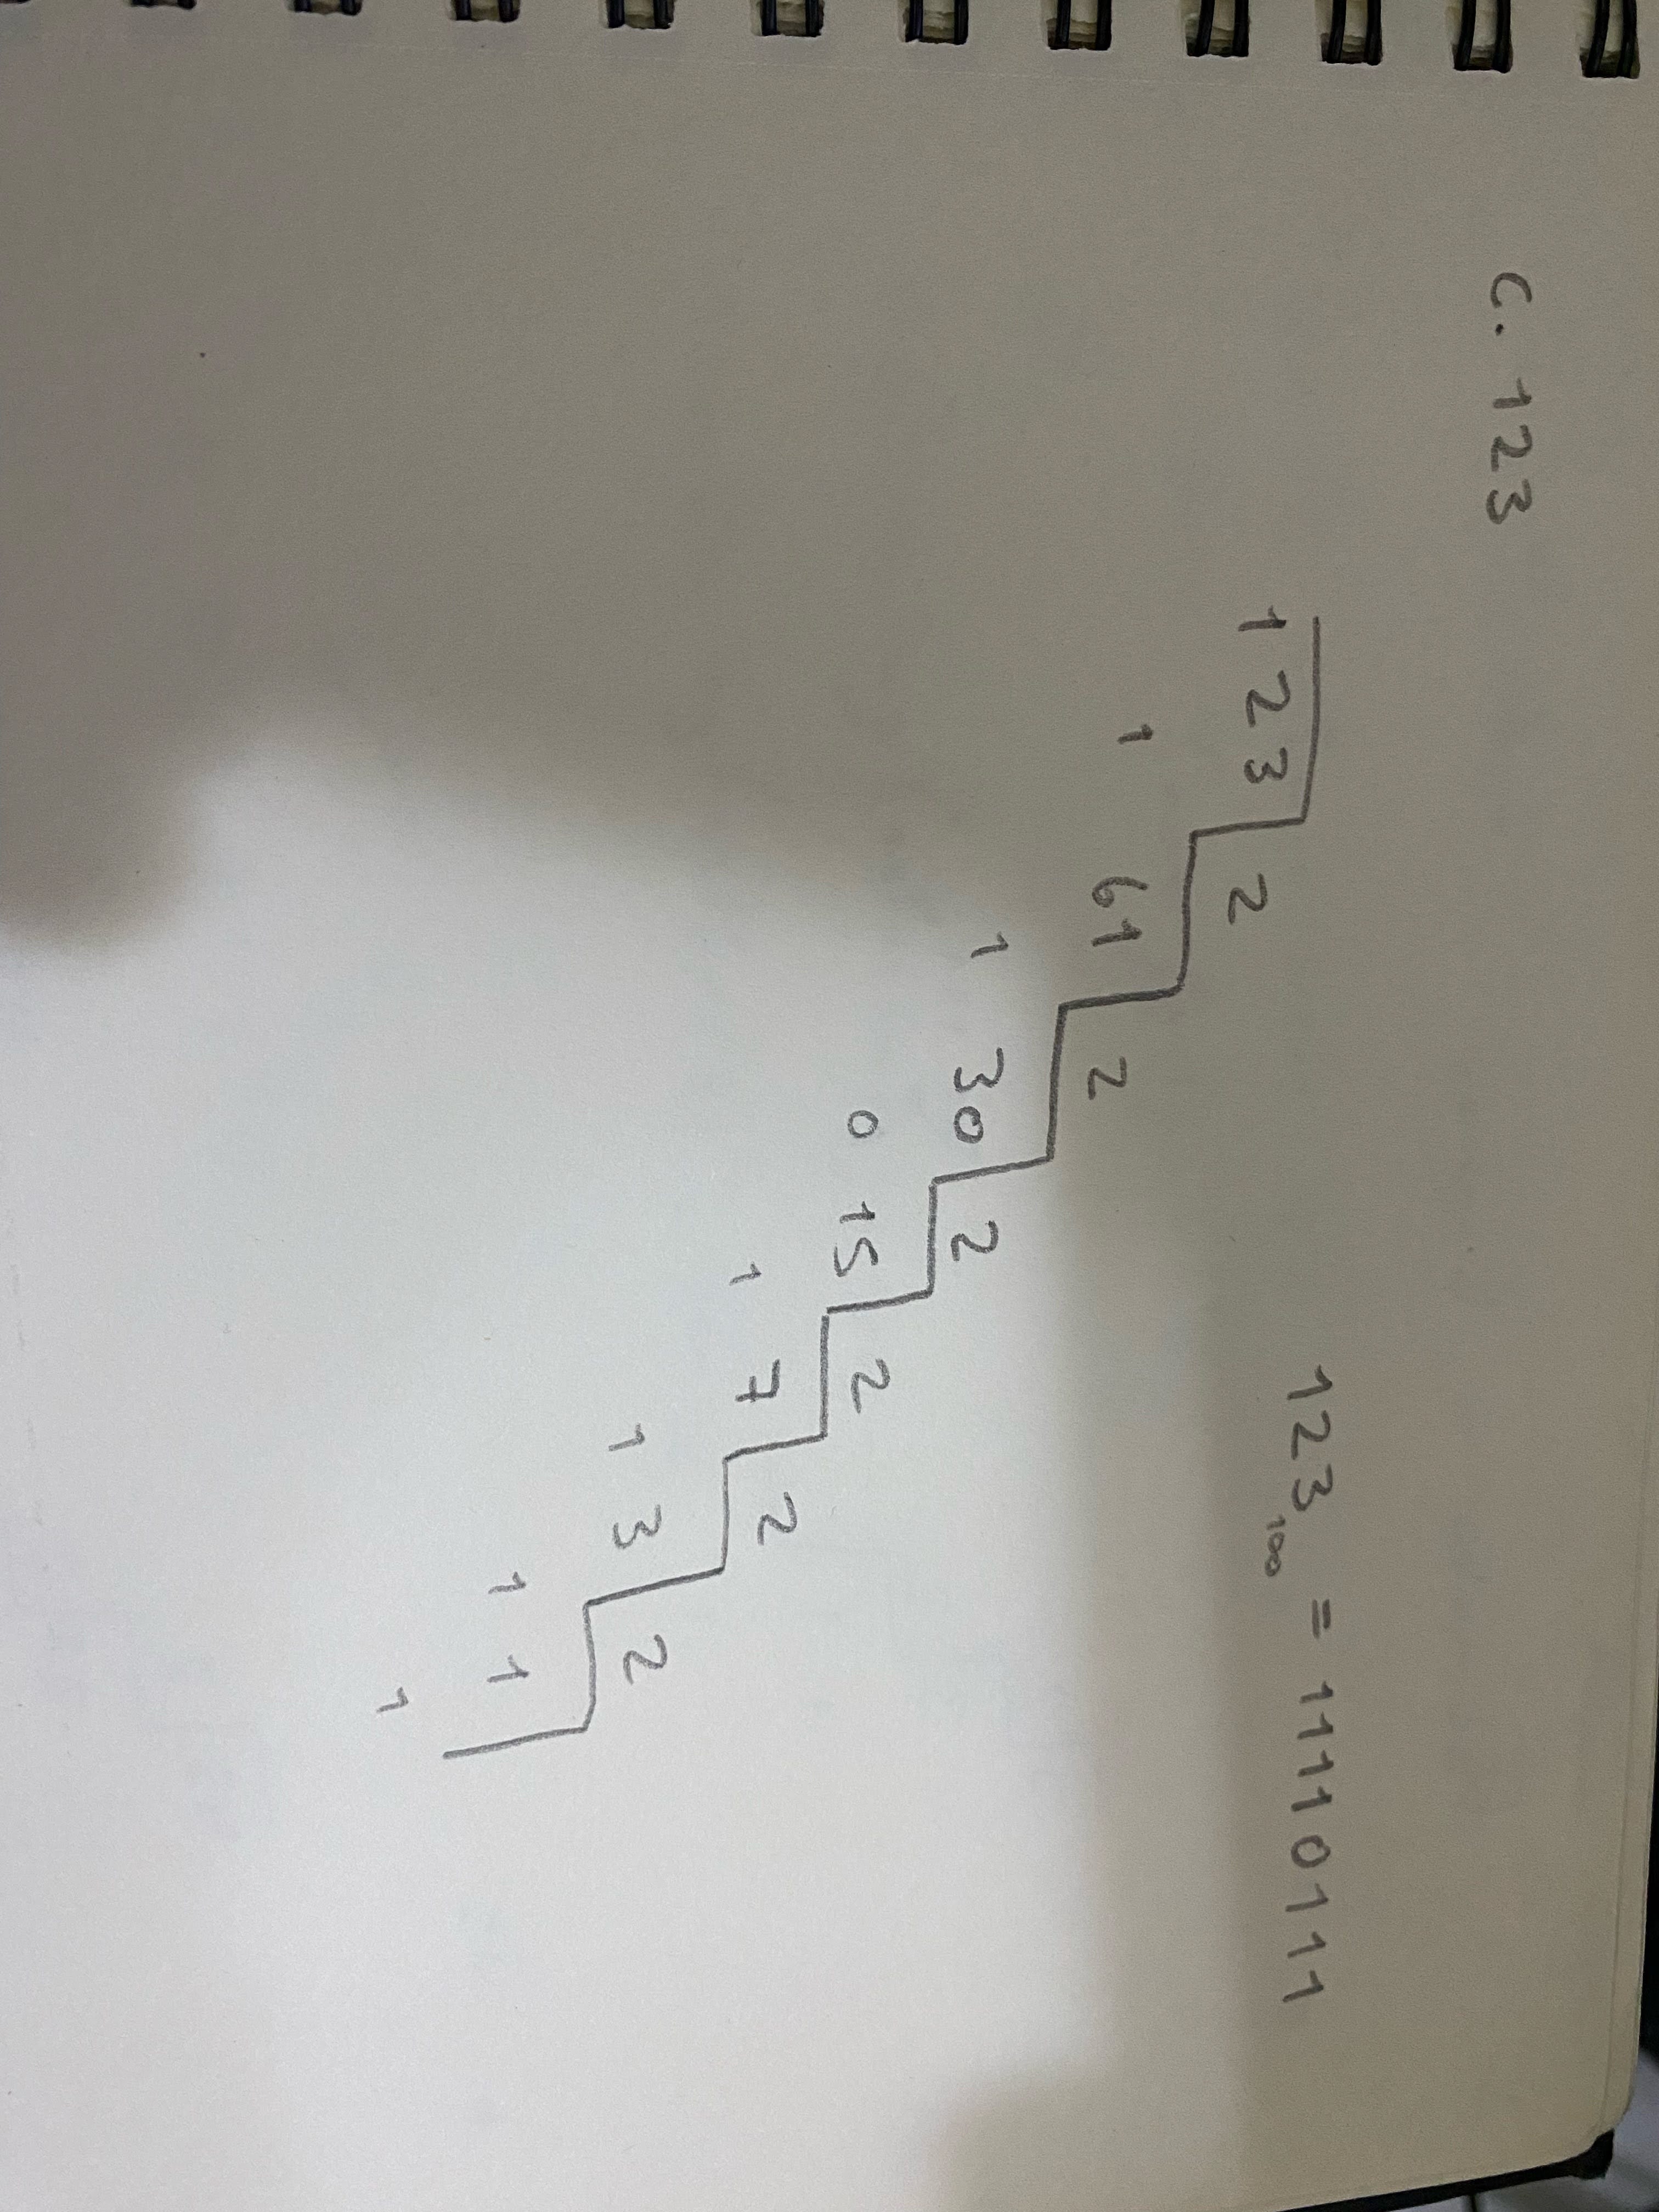 C. 123
123 2 123₁₀₀ = 11110111
1 61 2
1 30 2
0 15 2
1 7 2
1 3 2
1 1
1